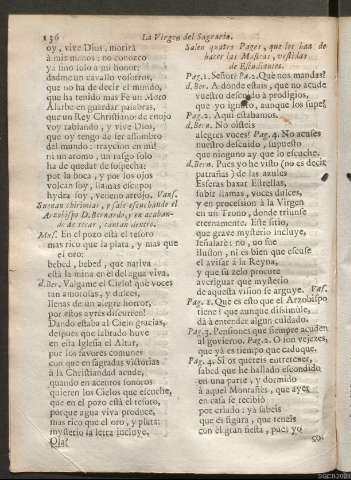 136 La Virgen del Sagrario.
oy, vive Dios, morirà
à mis manos: no conozco
ya sino solo a mi honor:
dadme un cavallo vosotros,
que no ha de decir el mundo,
que ha tenido mas Fe un Moro
Alarbe en guardar palabras,
que un Rey Christiano: de enojo
voy rabiando, y vive Dios,
que oy tengo de ser assombro
del mundo: traycion en mi!
ni un atomo, un rasgo solo
ha de quedar de sospecha:
por la boca, y por los ojos
volcàn soy, llamas escupo:
hydra soy, veneno arrojo. Vanse.
Suenan chirimias, y sale escuchando el
Arzobispo D. Bernardo, y en acaban-
do de tocar, cantan dentro.
Mus. En el pozo està el tesoro
mas rico que la plata, y mas que
el oro:
bebed, bebed, que nativa
està la mina en el del agua viva.
d. Ber. Valgame el Cielo! què voces
tan amorosas, y dulces,
llenas de un alegre horror,
por estos ayres discurren!
Dando estaba al Cielo gracias,
despues que labrado huve
en esta Iglesia el Altar,
por los favores comunes
con que en sagradas victorias
à la Christiandad acude,
quando en acentos sonoros
quieren los Cielos que escuche,
que en el pozo està el tesoro,
porque agua viva produce,
mas rico que el oro, y plata:
mysterio la letra incluye.
Ola!
Salen quatro Pages, que los han de
hacer las Musicas, vestidas
de Estudiantes.
Pag. 1. Señor? Pa. 2. Què nos mandas?
d. Ber. A donde estais, que no acude
vuestro descuido à prodigios,
que yo ignoro, aunque los supe?
Pag. 2. Aqui estabamos.
d. Bern. No oìsteis
alegres voces? Pag. 4. No acuses
nuestro descuido, supuesto
que ninguno ay que lo escuche.
d. Bern. Pues yo he visto (no es decir
patrañas) de las azules
Esferas baxar Estrellas,
subir llamas, voces dulces,
y en procession à la Virgen
en un Trono, donde triunfe
eternamente. Este sitio,
que grave mysterio incluye,
señalarè: no, no fue
ilusion, ni es bien que escuse
el avisar à la Reyna,
y que su zelo procure
averiguar que mysterio
de aquesta vision se arguye. Vas.
Pag. 2. Què es esto que el Arzobispo
tiene? que aunque dissimule,
dà à entender algun cuidado.
Pag. 3. Pensiones que siempre acuden
al govierno. Pag. 2. O son vejezes,
que yà es tiempo que caduque.
Pag. 4. Si os quereis entretener,
sabed que he hallado escondido
en una parte, y dormido
à aquel Montañès, que ayer
en casa se recibiò
por criado: ya sabeis
que es figura, que teneis
con èl gran fiesta, pues yo